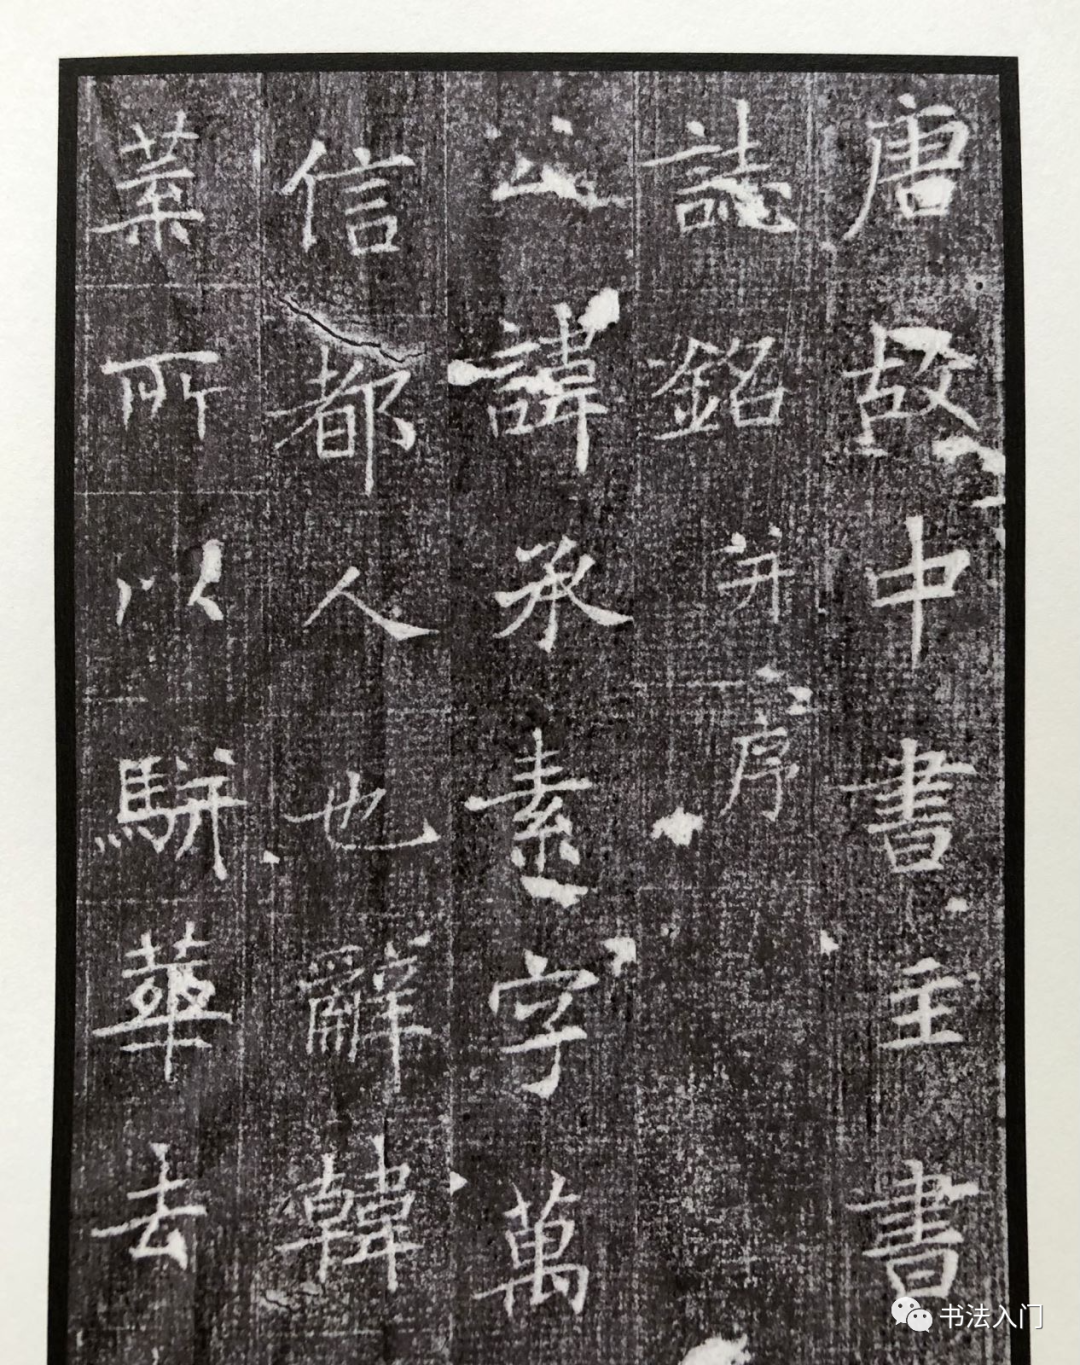 唐故中書主書
誌銘并序
公諱承素字萬
信都人也辭韓
葉所以駢華去
书法入门